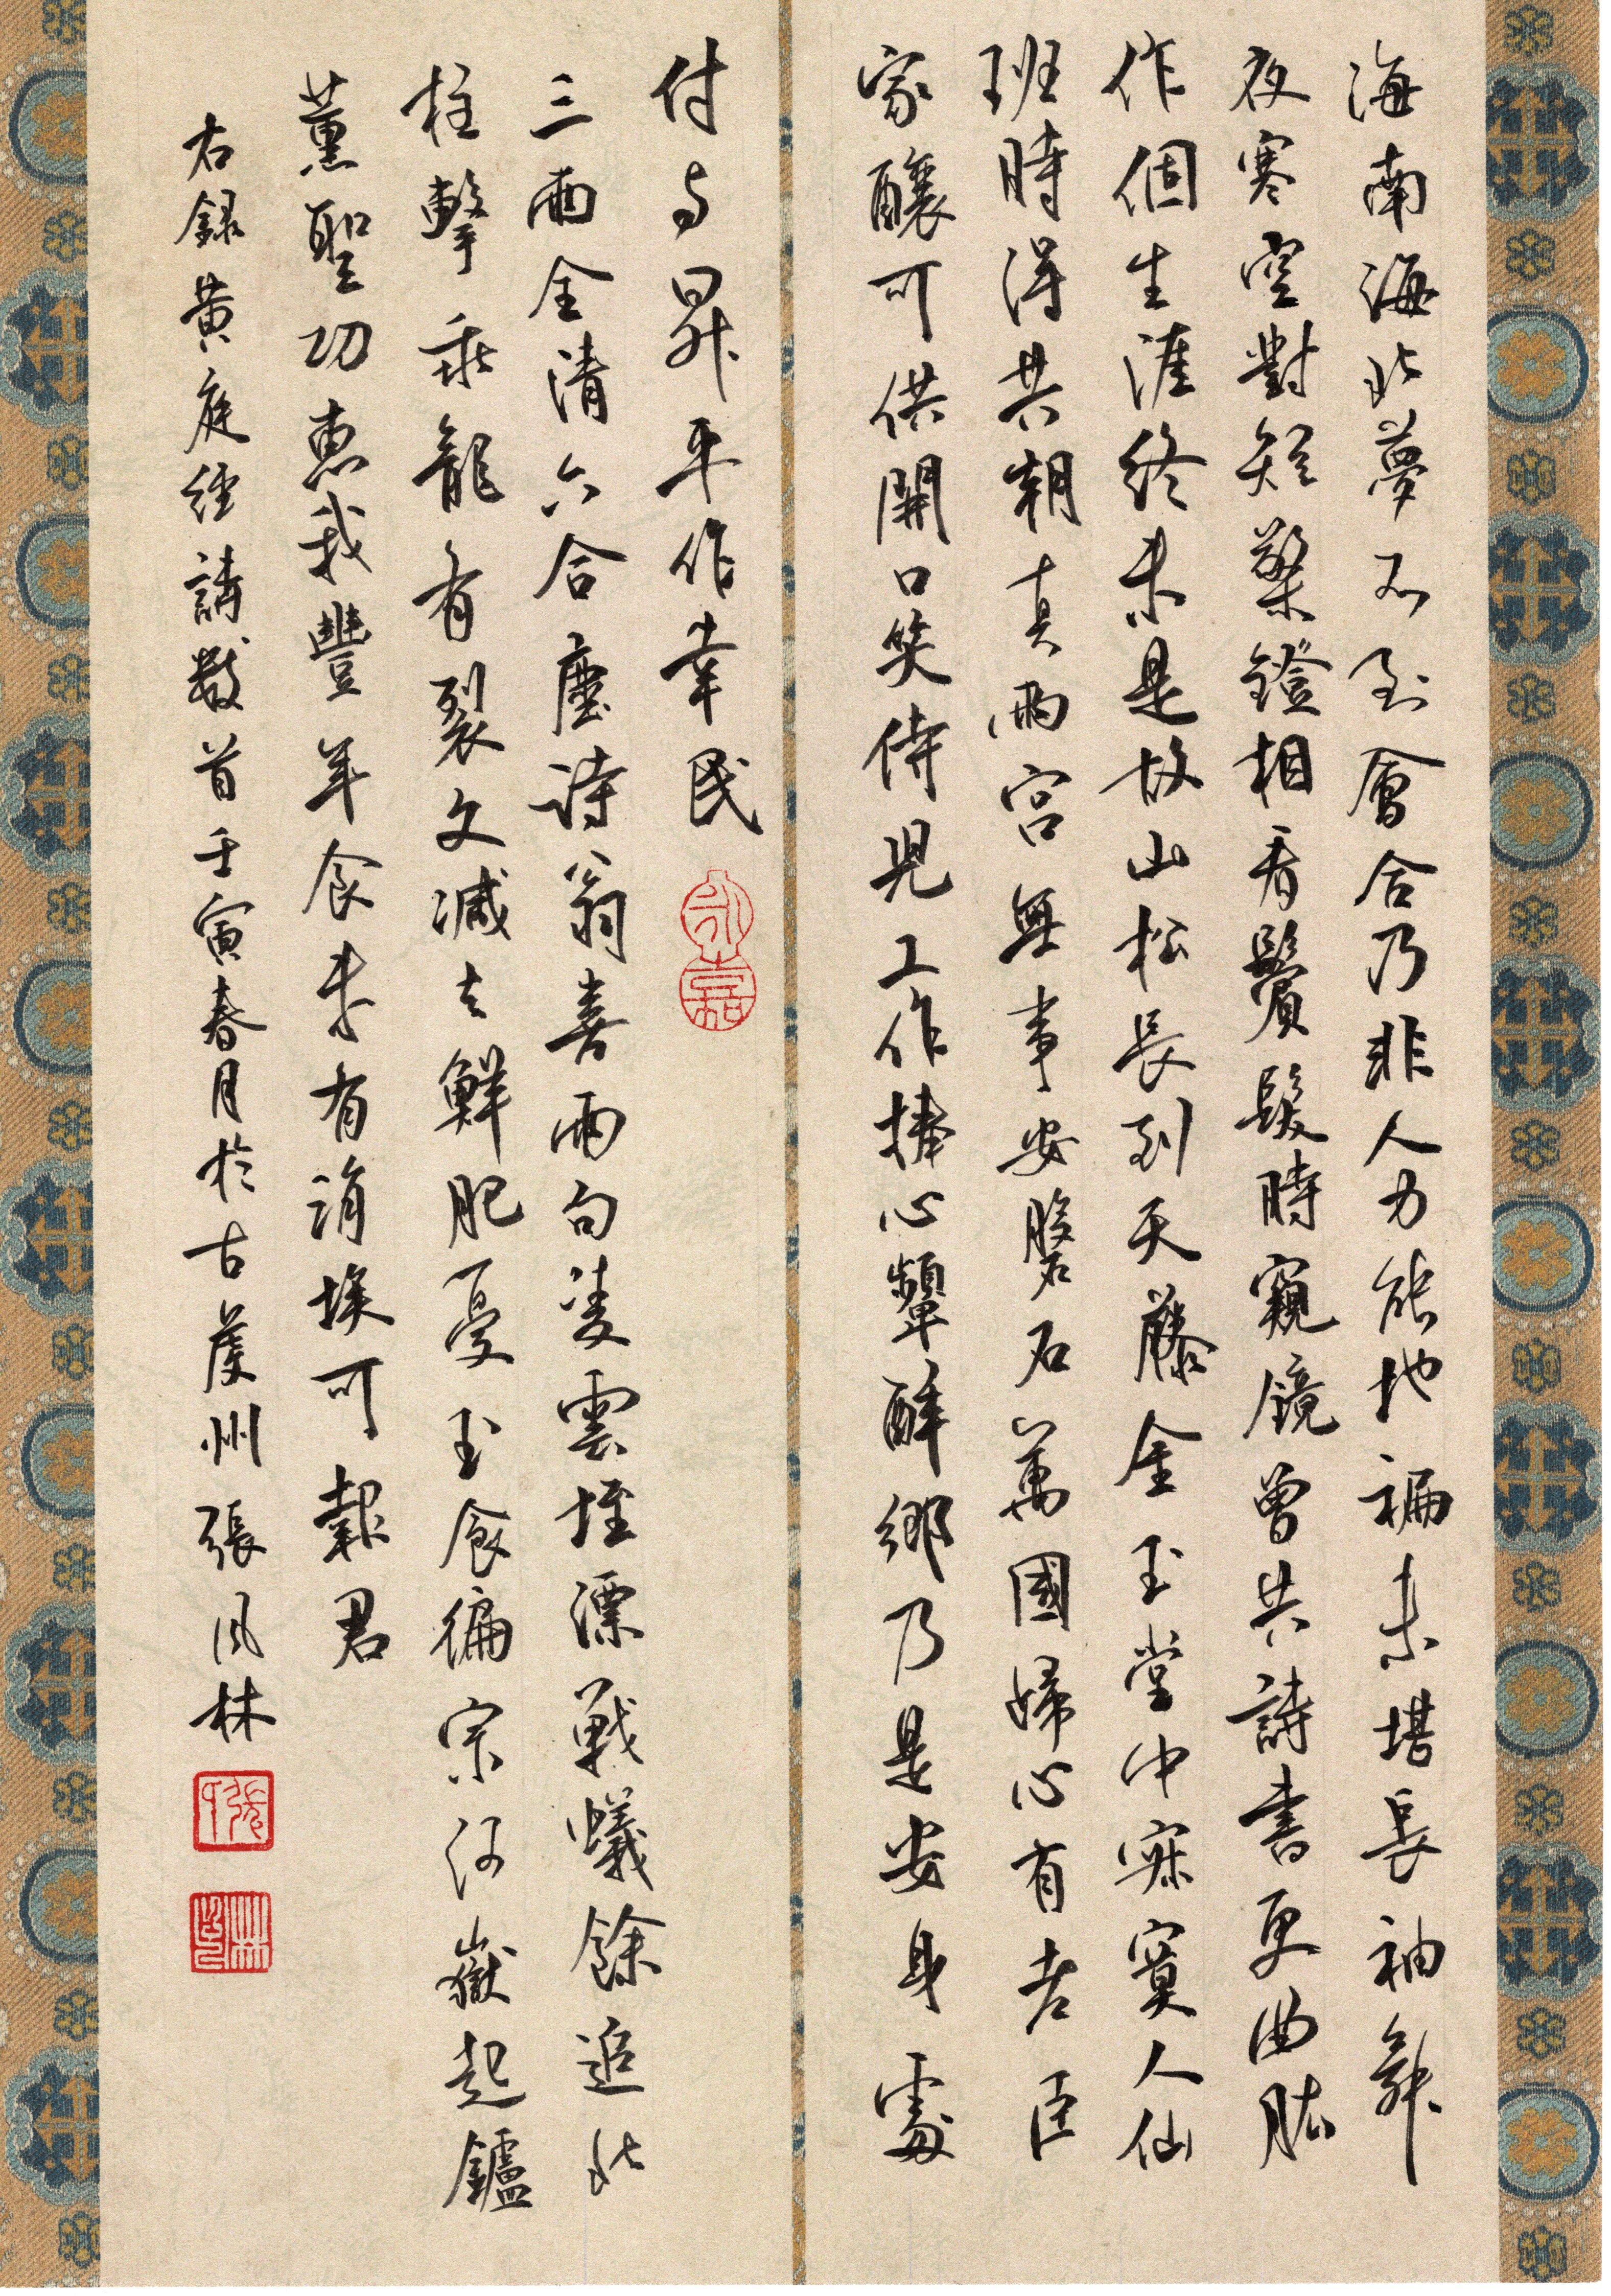 海南海北夢不到會合乃非人力能地褊未堪長袖舞
夜寒空對短檠鐙相看鬢髮時窺鏡曾共詩書更曲肱
作個生涯終未是故山松長到天藤金玉堂中寂寞人仙
班時得共朝真兩宮無事安磐石萬國歸心有老臣
家釀可供開口笑侍兒工作捧心顰醉鄉乃是安身處
付与昇平作幸民
三雨全清六合塵詩翁喜雨句凌雲垤漂戰蟻餘追北
柱擊乖龍有裂文減去鮮肥憂玉食徧宗河嶽起鑪
薰聖功惠我豐年食未有涓埃可報君
右録黃庭經詩數首壬寅春月於古虔州張凡林
永嘉
張
林